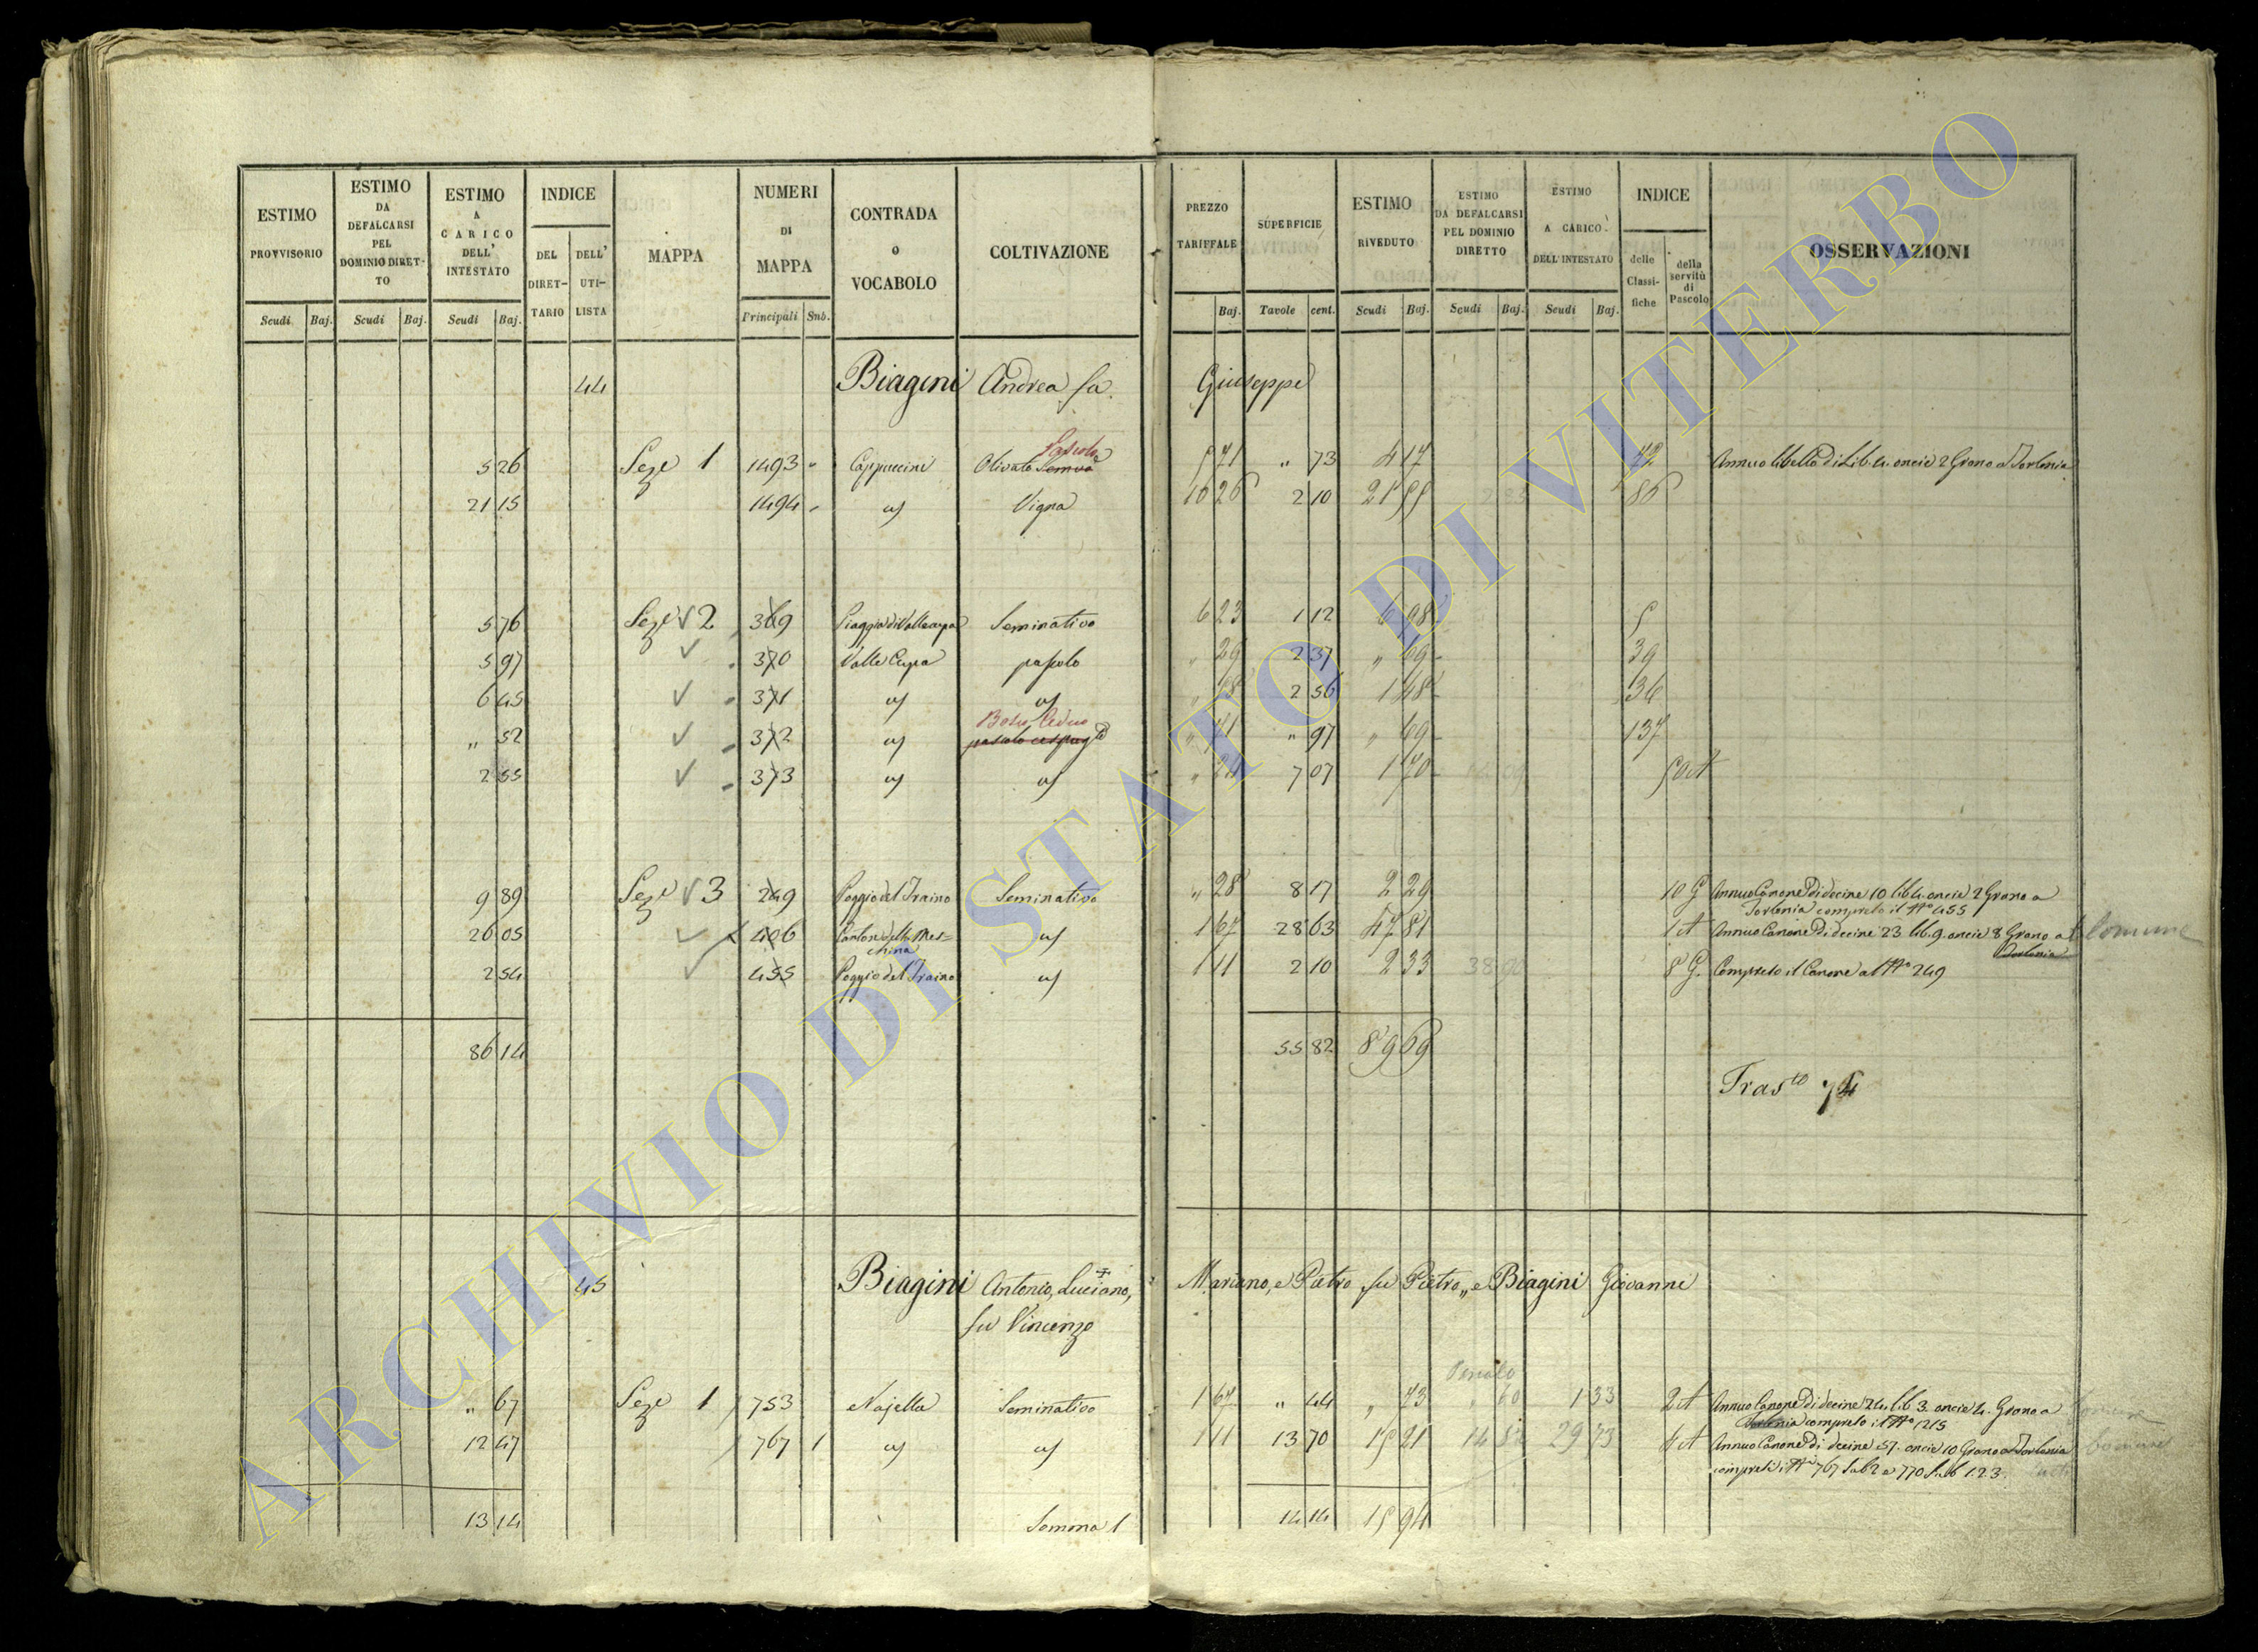 ESTIMO PROVVISORIO Scudi Baj.
ESTIMO DA DEFALCARSI PEL DOMINIO DIRETTO Scudi Baj.
ESTIMO A CARICO DELL' INTESTATO Scudi Baj.
INDICE DEL DIRETTARIO DELL' UTILISTA
MAPPA
NUMERI DI MAPPA Principali Sub.
CONTRADA o VOCABOLO
COLTIVAZIONE
PREZZO TARIFFALE Baj.
SUPERFICIE Tavole cent.
ESTIMO RIVEDUTO Scudi Baj.
ESTIMO DA DEFALCARSI PEL DOMINIO DIRETTO Scudi Baj.
ESTIMO A CARICO DELL'INTESTATO Scudi Baj.
INDICE delle Classifiche della servitù di Pascolo
OSSERVAZIONI
44 Biagini Andrea fu Giuseppe
Pascolo
5 26 Seze 1 1493 Cappuccini Olivato 5 71 " 73 4 17 42 Annuo libello di Lib. 4. oncie 2 Grano a Torlonia
21 15 1494 Vigna 10 26 2 10 21 55 86
5 76 Seze 2 369 Piaggia di Valle cupa Seminativo 6 23 1 12 6 98 5
5 97 370 Valle Cupa pascolo " 29 2 37 " 69 39
6 45 371 2 56 1 48 36
Bosco Ceduo
" 52 372 pascolo cespug to " 71 " 97 " 69 137
2 55 373 " 24 7 07 1 70 5 A
9 89 Seze 3 249 Poggio del Traino Seminativo " 28 8 17 2 29 10 G Annuo Canone di decine 10 lib 4. oncie 2 Grano a
Torlonia compreso il No 455
26 05 406 Cantone della Meschina 1 67 28 63 47 81 1 A Annuo Canone di decine 23 lib. 9. oncie 8 Grano a Comune
Torlonia
2 54 455 Poggio del Traino 1 11 2 10 2 33 8 G. Compreso il Canone al No 249
86 14 55 82 89 69
Trasto 74
45 Biagini Antonio, Luciano, Mariano, e Pietro fu Pietro, e Biagini Giovanni
fu Vincenzo
" 67 Seze 1 753 Najella Seminativo 1 67 " 44 " 73 " 60 1 33 2 A Annuo Canone di decine 24. lib 3. oncie 4. Grano a
Torlonia compreso il No 1215
12 47 767 1 1 11 13 70 15 21 14 52 29 73 4 A Annuo Canone di decine 57. oncie 10 Grano a Torlonia Comune
compresi i Ni 767 Sub 2 e 770 Sub 1.2.3.
13 14 Somma 1 14 14 15 94
ARCHIVIO DI STATO DI VITERBO